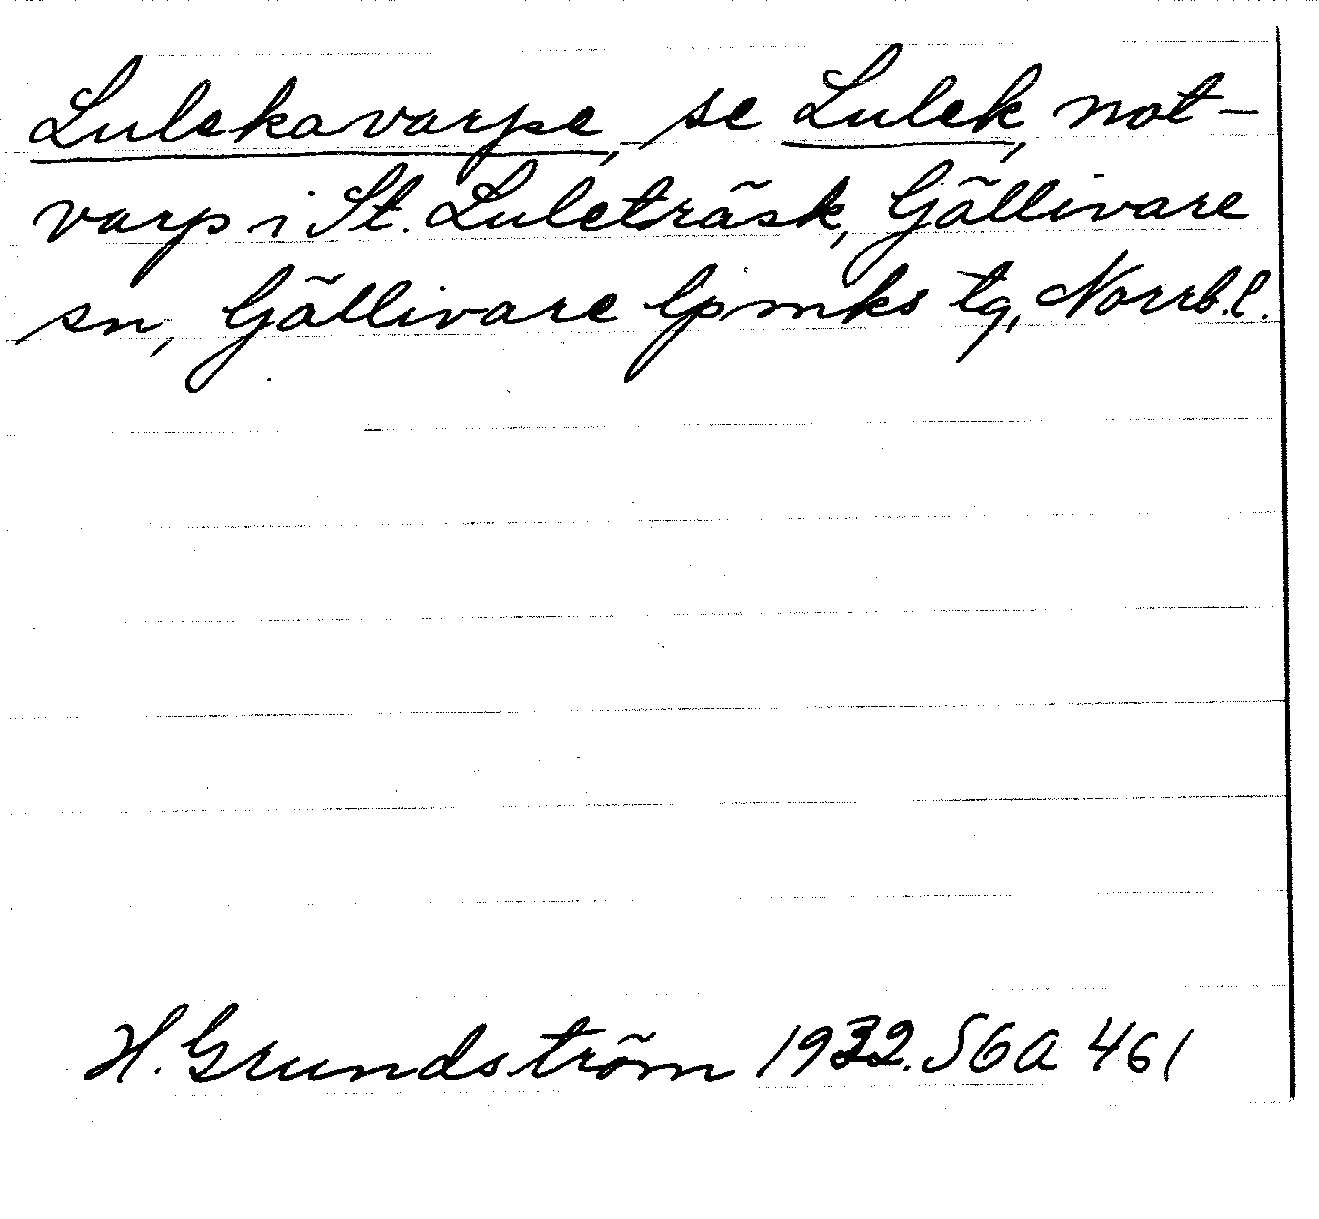 Lulekavarpe, se Lulek, not-
varp i St. Luleträsk, Gällivare
sn, Gällivare lpmks tg, Norrb.l.
H. Grundström 1932. SGA 461